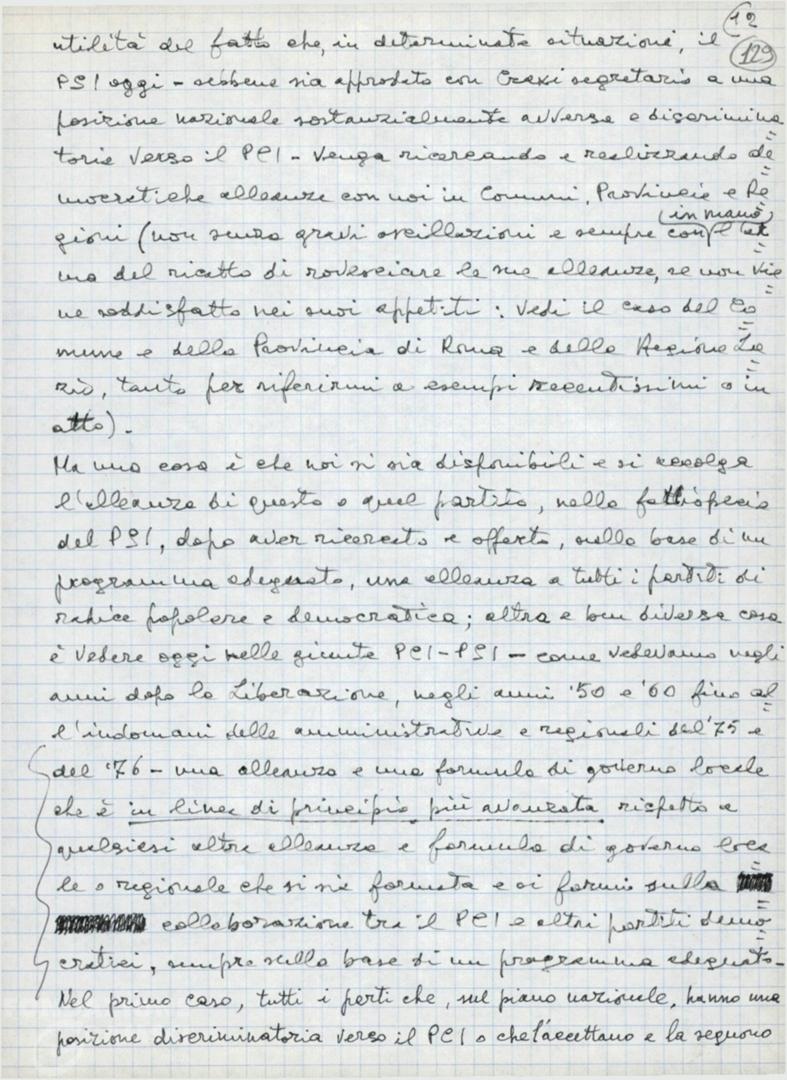 12
129
utilità del fatto che, in determinate situazioni, il
PSI oggi – sebbene sia approdato con Craxi segretario a una
posizione nazionale sostanzialmente avversa e discrimina
toria verso il PCI – venga ricercando e realizzando de
mocratiche alleanze con noi in Comuni, Provincie e Re
gioni (non senza gravi oscillazioni e sempre con in mano l'ar
ma del ricatto di rovesciare le sue alleanze, se non vie
ne soddisfatto nei suoi appetiti: vedi il caso del Co
mune e della Provincia di Roma e della Regione La
zio, tanto per riferirmi a esempi recentissimi o in
atto).
Ma una cosa è che noi si sia disponibili e si accolga
l'alleanza di questo o quel partito, nella fattispecie
del PSI, dopo aver ricercato e offerto, sulla base di un
programma adeguato, una alleanza a tutti i partiti di
radice popolare e democratica; altra e ben diversa cosa
è vedere oggi nelle giunte PCI-PSI – come vedevamo negli
anni dopo la Liberazione, negli anni '50 e '60 fino al
l'indomani delle amministrative e regionali del '75 e
del '76 – una alleanza e una formula di governo locale
che è in linea di principio più avanzata rispetto a
qualsiasi altra alleanza e formula di governo loca
le o regionale che si sia formata e si formi sulla
collaborazione tra il PCI e altri partiti demo
cratici, sempre sulla base di un programma adeguato.
Nel primo caso, tutti i partiti che, sul piano nazionale, hanno una
posizione discriminatoria verso il PCI o che l'accettano e la seguono